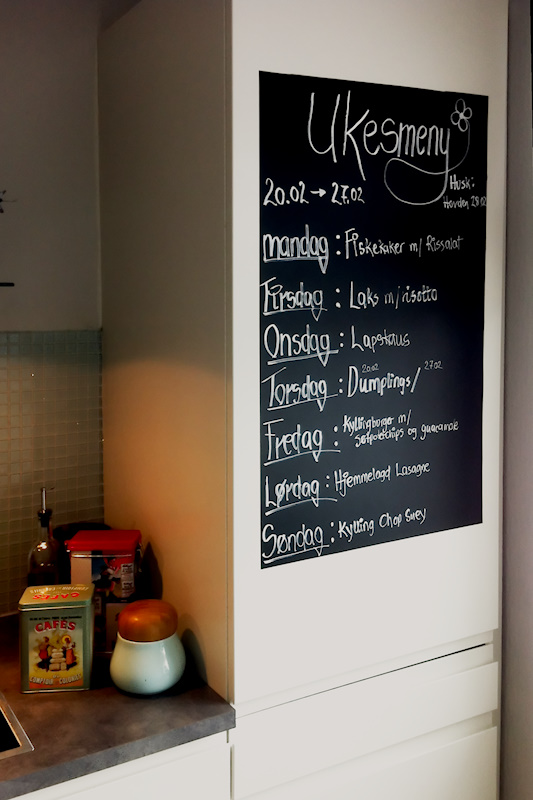 Ukesmeny
20.02 → 27.02
Husk:
Hovden 28.02
mandag: Fiskekaker m/ Rissalat
Tirsdag: Laks m/risotto
Onsdag: Lapskaus
20.02 27.02
Torsdag: Dumplings/
Fredag: Kyllingburger m/
søtpotetchips og guacamole
Lørdag: Hjemmelagd Lasagne
Søndag: Kylling Chop Suey
CAFÉS
COMPTOIR COLONIAL